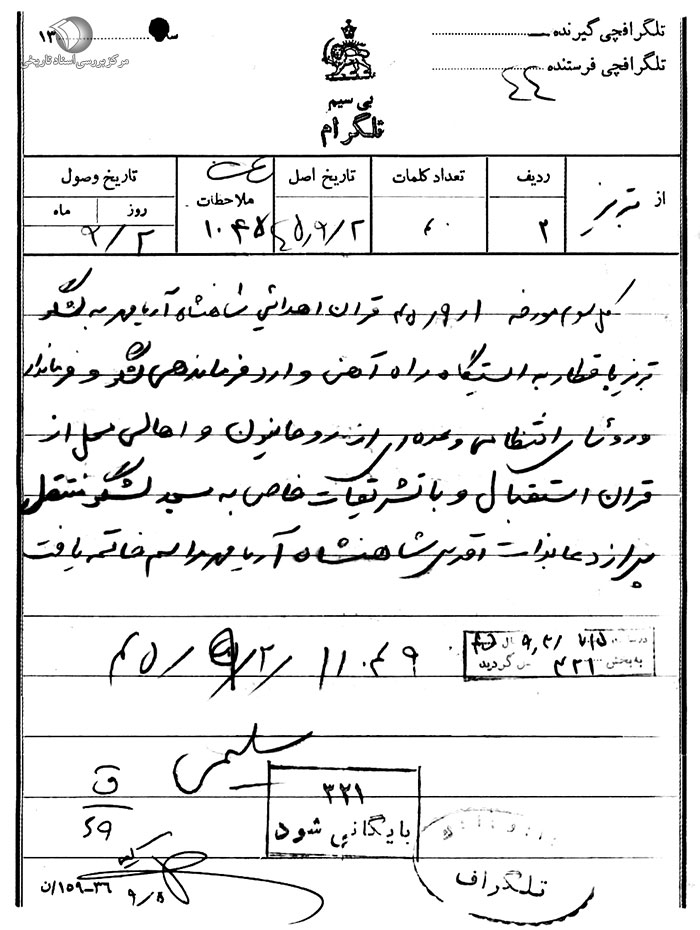 تلگرافچی گیرنده
تلگرافچی فرستنده
سال ۱۳
مرکز بررسی اسناد تاریخی
بی سیم
تلگرام
از تبریز
ردیف
۳
تعداد کلمات
تاریخ اصل
۴۵/۹/۲
ملاحظات
۱۰۴۵
تاریخ وصول
روز ماه
۹/۲
مورخه ۴۵/۹/۱ قران اهدائی شاهنشاه آریامهر به لشگر
تبریز با قطار به ایستگاه راه آهن وارد فرماندهی لشگر و فرماندار
و روسای انتظامی و عده ای از روحانیون و اهالی محل از
قران استقبال و با تشریفات خاص به مسجد لشگر منتقل
پس از دعا بذات اقدس شاهنشاه آریامهر مراسم خاتمه یافت
۴۵/۹/۲/ ۱۱۰۴۹
به بخش ۳۲۱ گردید
۳۲۱
بایگانی شود
تلگراف
۹/۵
۱۵۹-۳۶/ن